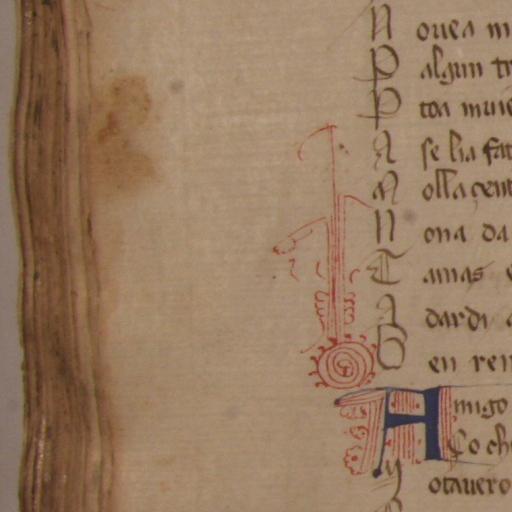 N on e a m
P algun tr
P toa muie
A se lia fat
M olla çent
N ona da
T amas
A dardi a
B en ren
A migo
Co ch
y otauero